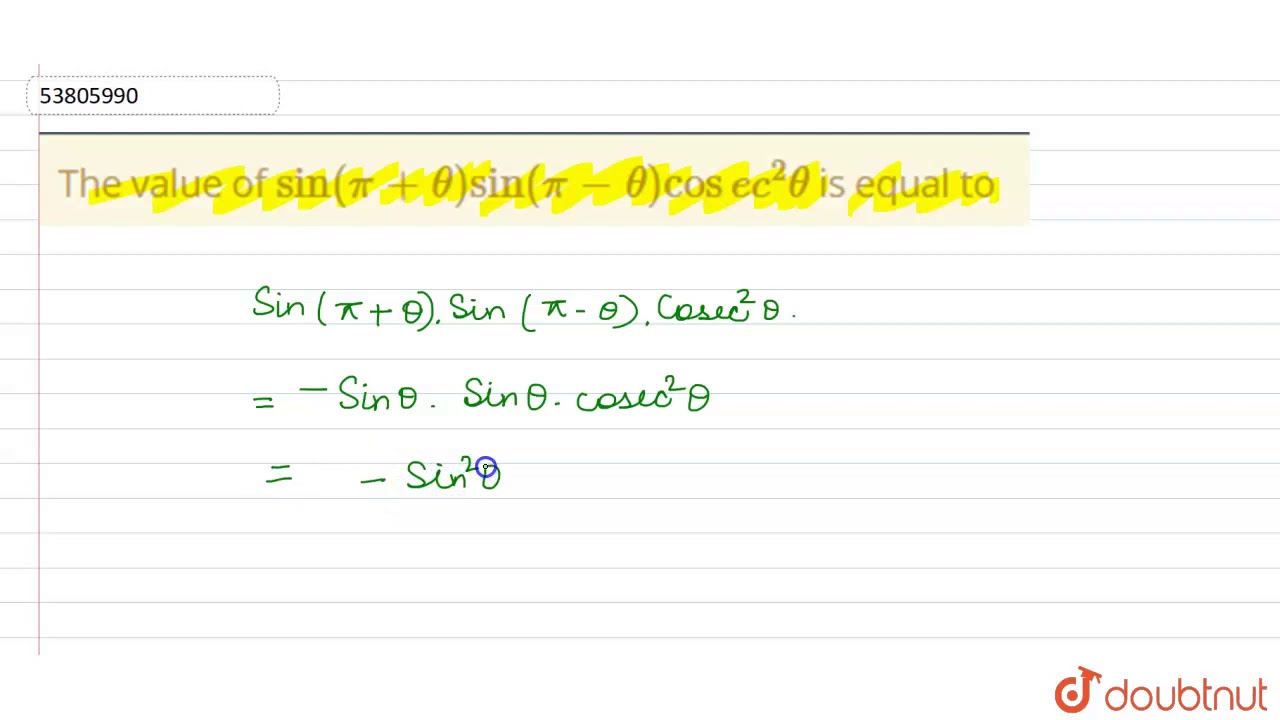 53805990
The value of sin(π + θ)sin(π − θ)cos ec²θ is equal to
Sin (π + θ). Sin (π - θ). Cosec²θ.
= - Sinθ. Sinθ. cosec²θ
= - Sin²θ
doubtnut